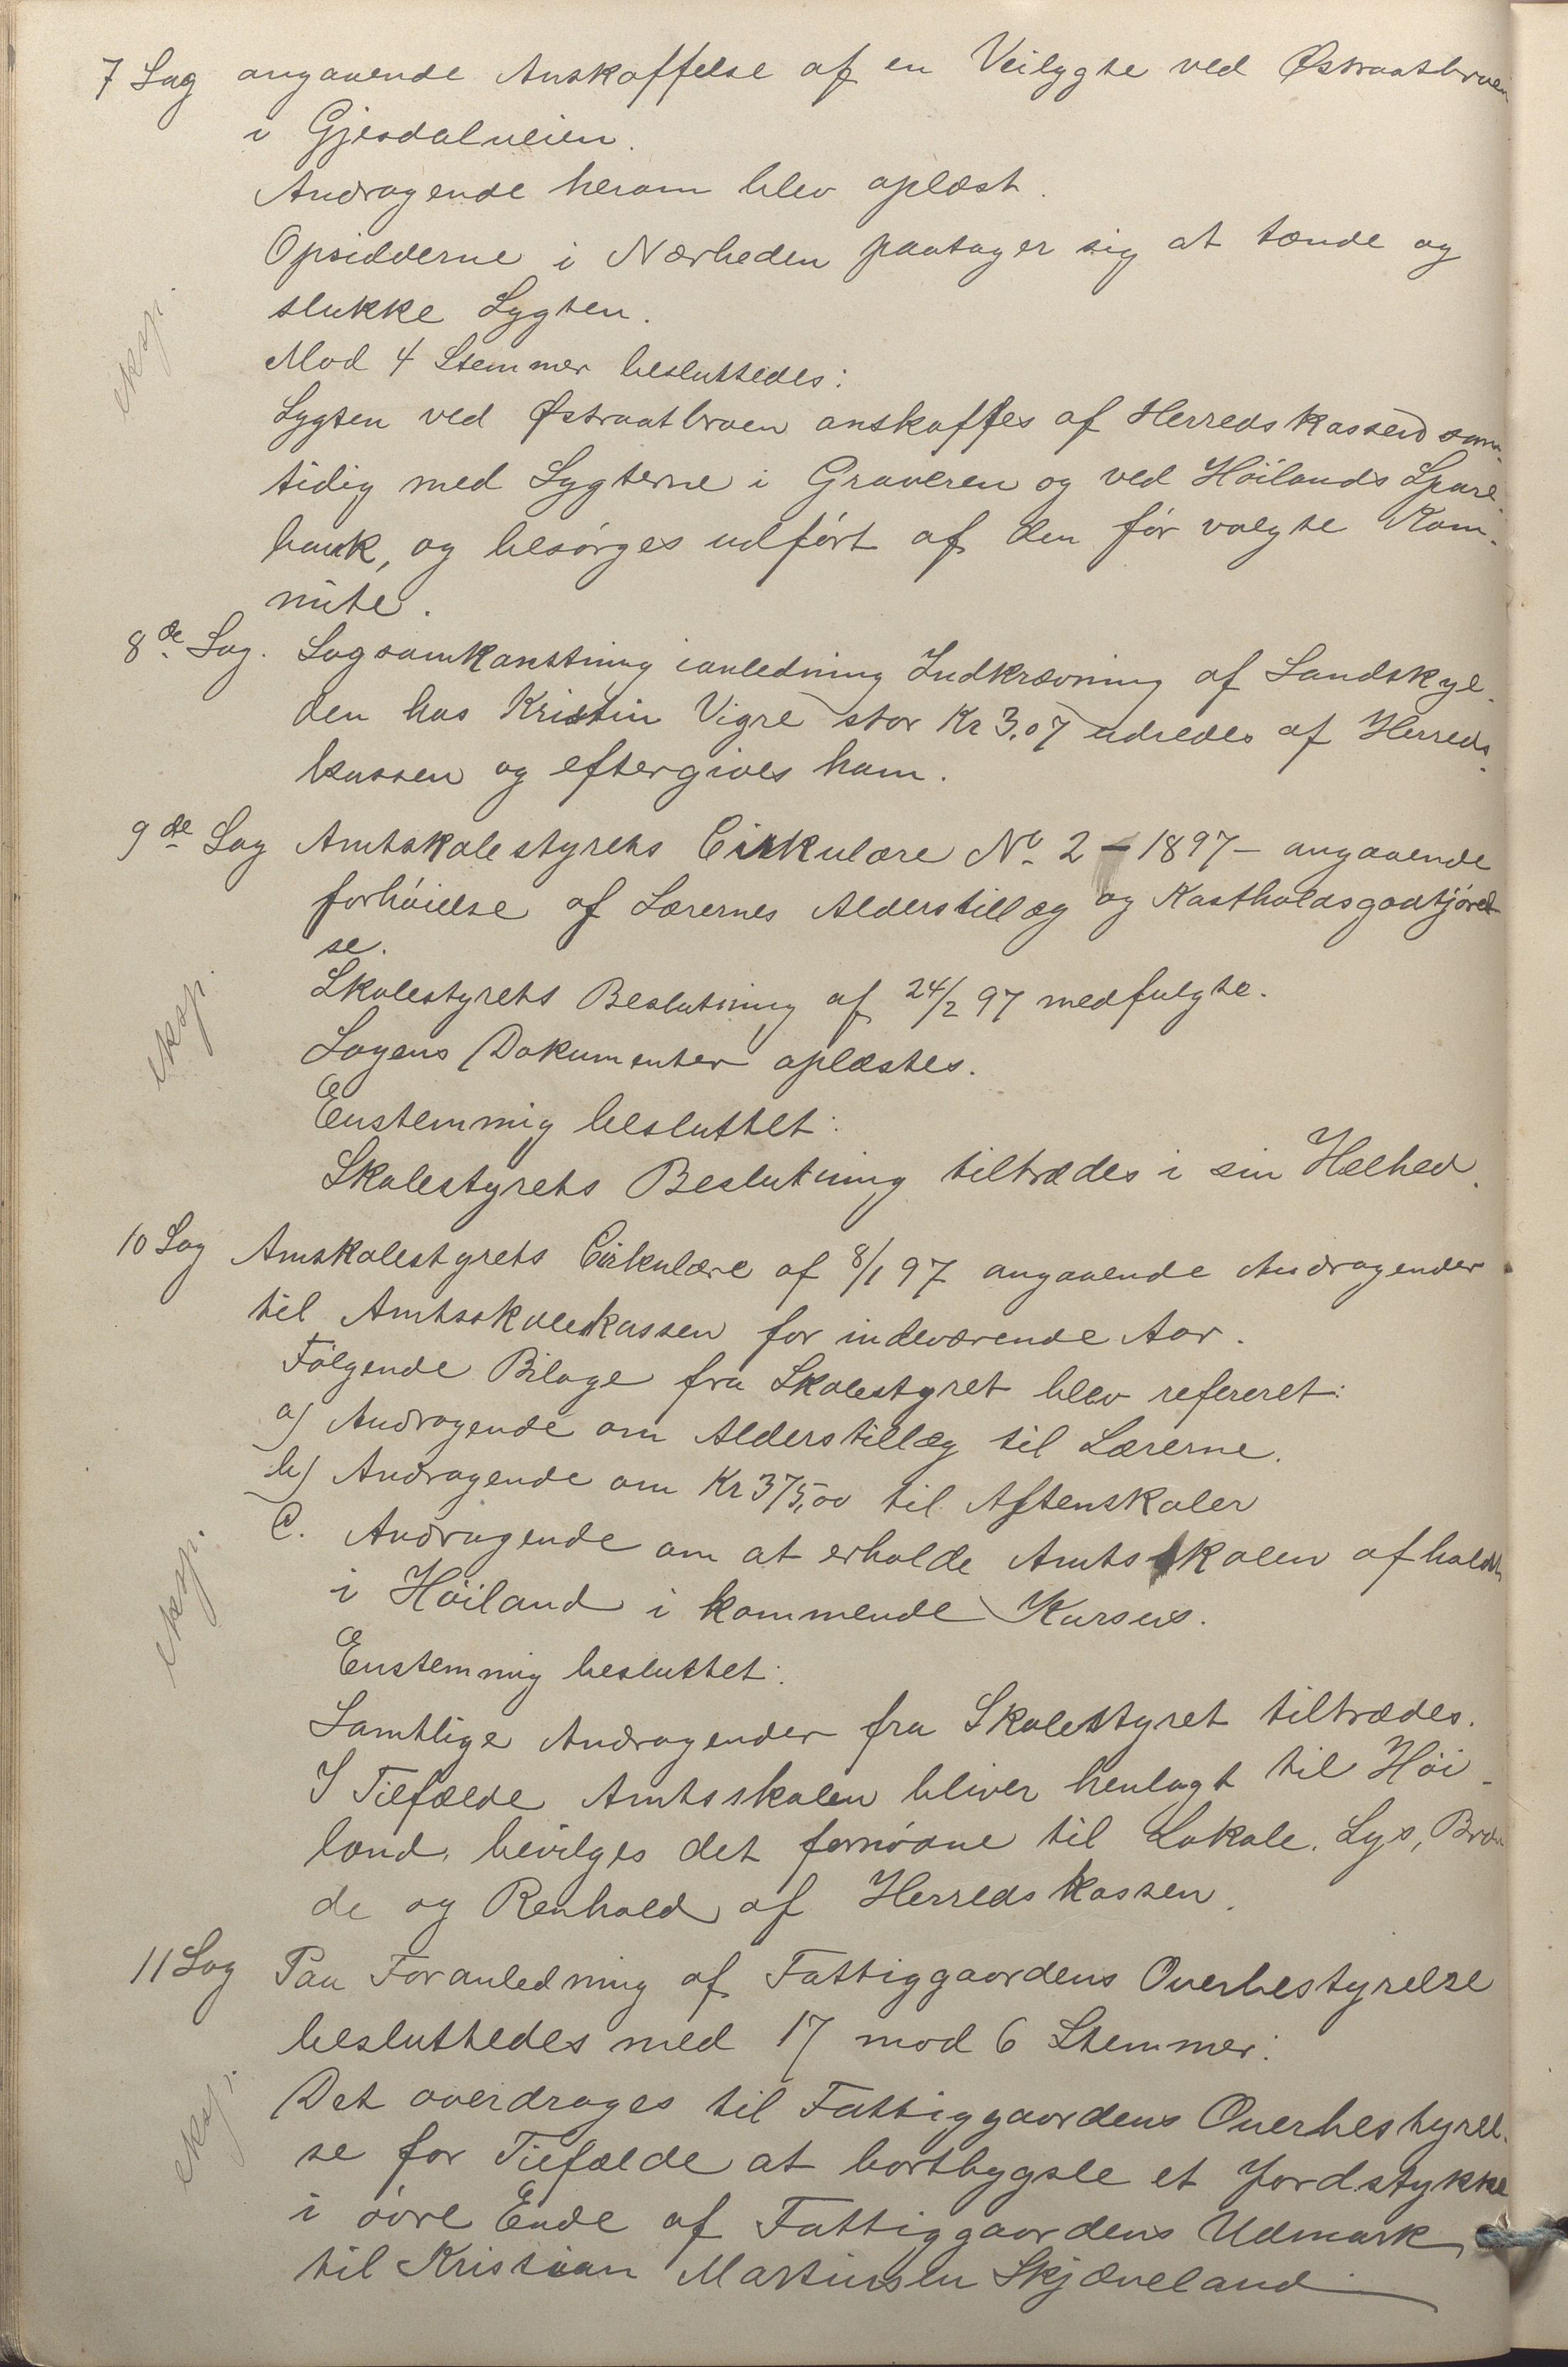 7 Sag angaaende Anskaffelse af en Veilygte ved Østraatbroen
i Gjesdalveien.
Andragende herom blev oplæst.
Opsidderne i Nærheden paatager sig at tænde og
slukke Lygten.
eksp.
Mod 4 Stemmer besluttedes:
Lygten ved Østraatbroen anskaffes af Herredskassen sam-
tidig med Lygterne i Graveren og ved Höilands Spare-
bank, og besørges udført af den før valgte Kom-
mite.
8de Sag. Sagsomkostning ianledning Indkrævning af Landskyl-
den hos Kristin Vigre stor Kr 3.07 udredes af Herreds-
kassen og eftergives ham.
9de Sag Amtskolestyrets Cirkulære No 2 - 1897 - angaaende
forhöielse af Lærernes Alderstillæg og Kostholdsgodtjörel-
se.
Skolestyrets Beslutning af 24/2 97 medfulgte.
eksp.
Sagens Dokumenter oplæstes.
Enstemmig besluttet:
Skolestyrets Beslutning tiltrædes i sin Helhed.
10 Sag Amskolestyrets Cirkulære af 8/1 97 angaaende Andragender
til Amtsskolekassen for indeværende Aar.
Fölgende Bilage fra Skolestyret blev refereret:
a) Andragende om Alderstillæg til Lærerne.
b) Andragende om Kr 375,00 til Aftenskoler
C. Andragende om at erholde Amtsskolen afholdt
i Höiland i kommende Kursus.
eksp.
Enstemmig besluttet:
Samtlige Andragender fra Skolestyret tiltrædes.
I Tilfælde Amtsskolen bliver henlagt til Höi-
land, bevilges det fornödne til Lokale, Lys, Bræn
de og Renhold af Herredskassen.
11 Sag Paa Foranledning af Fattiggaardens Overbestyrelse
besluttedes med 17 mod 6 Stemmer:
eksp.
Det overdrages til Fattiggaardens Overbestyrel-
se for Tilfælde at bortbygsle et Jordstykke
i övre Ende af Fattiggaardens Udmark
til Kristian Martinsen Skjæveland